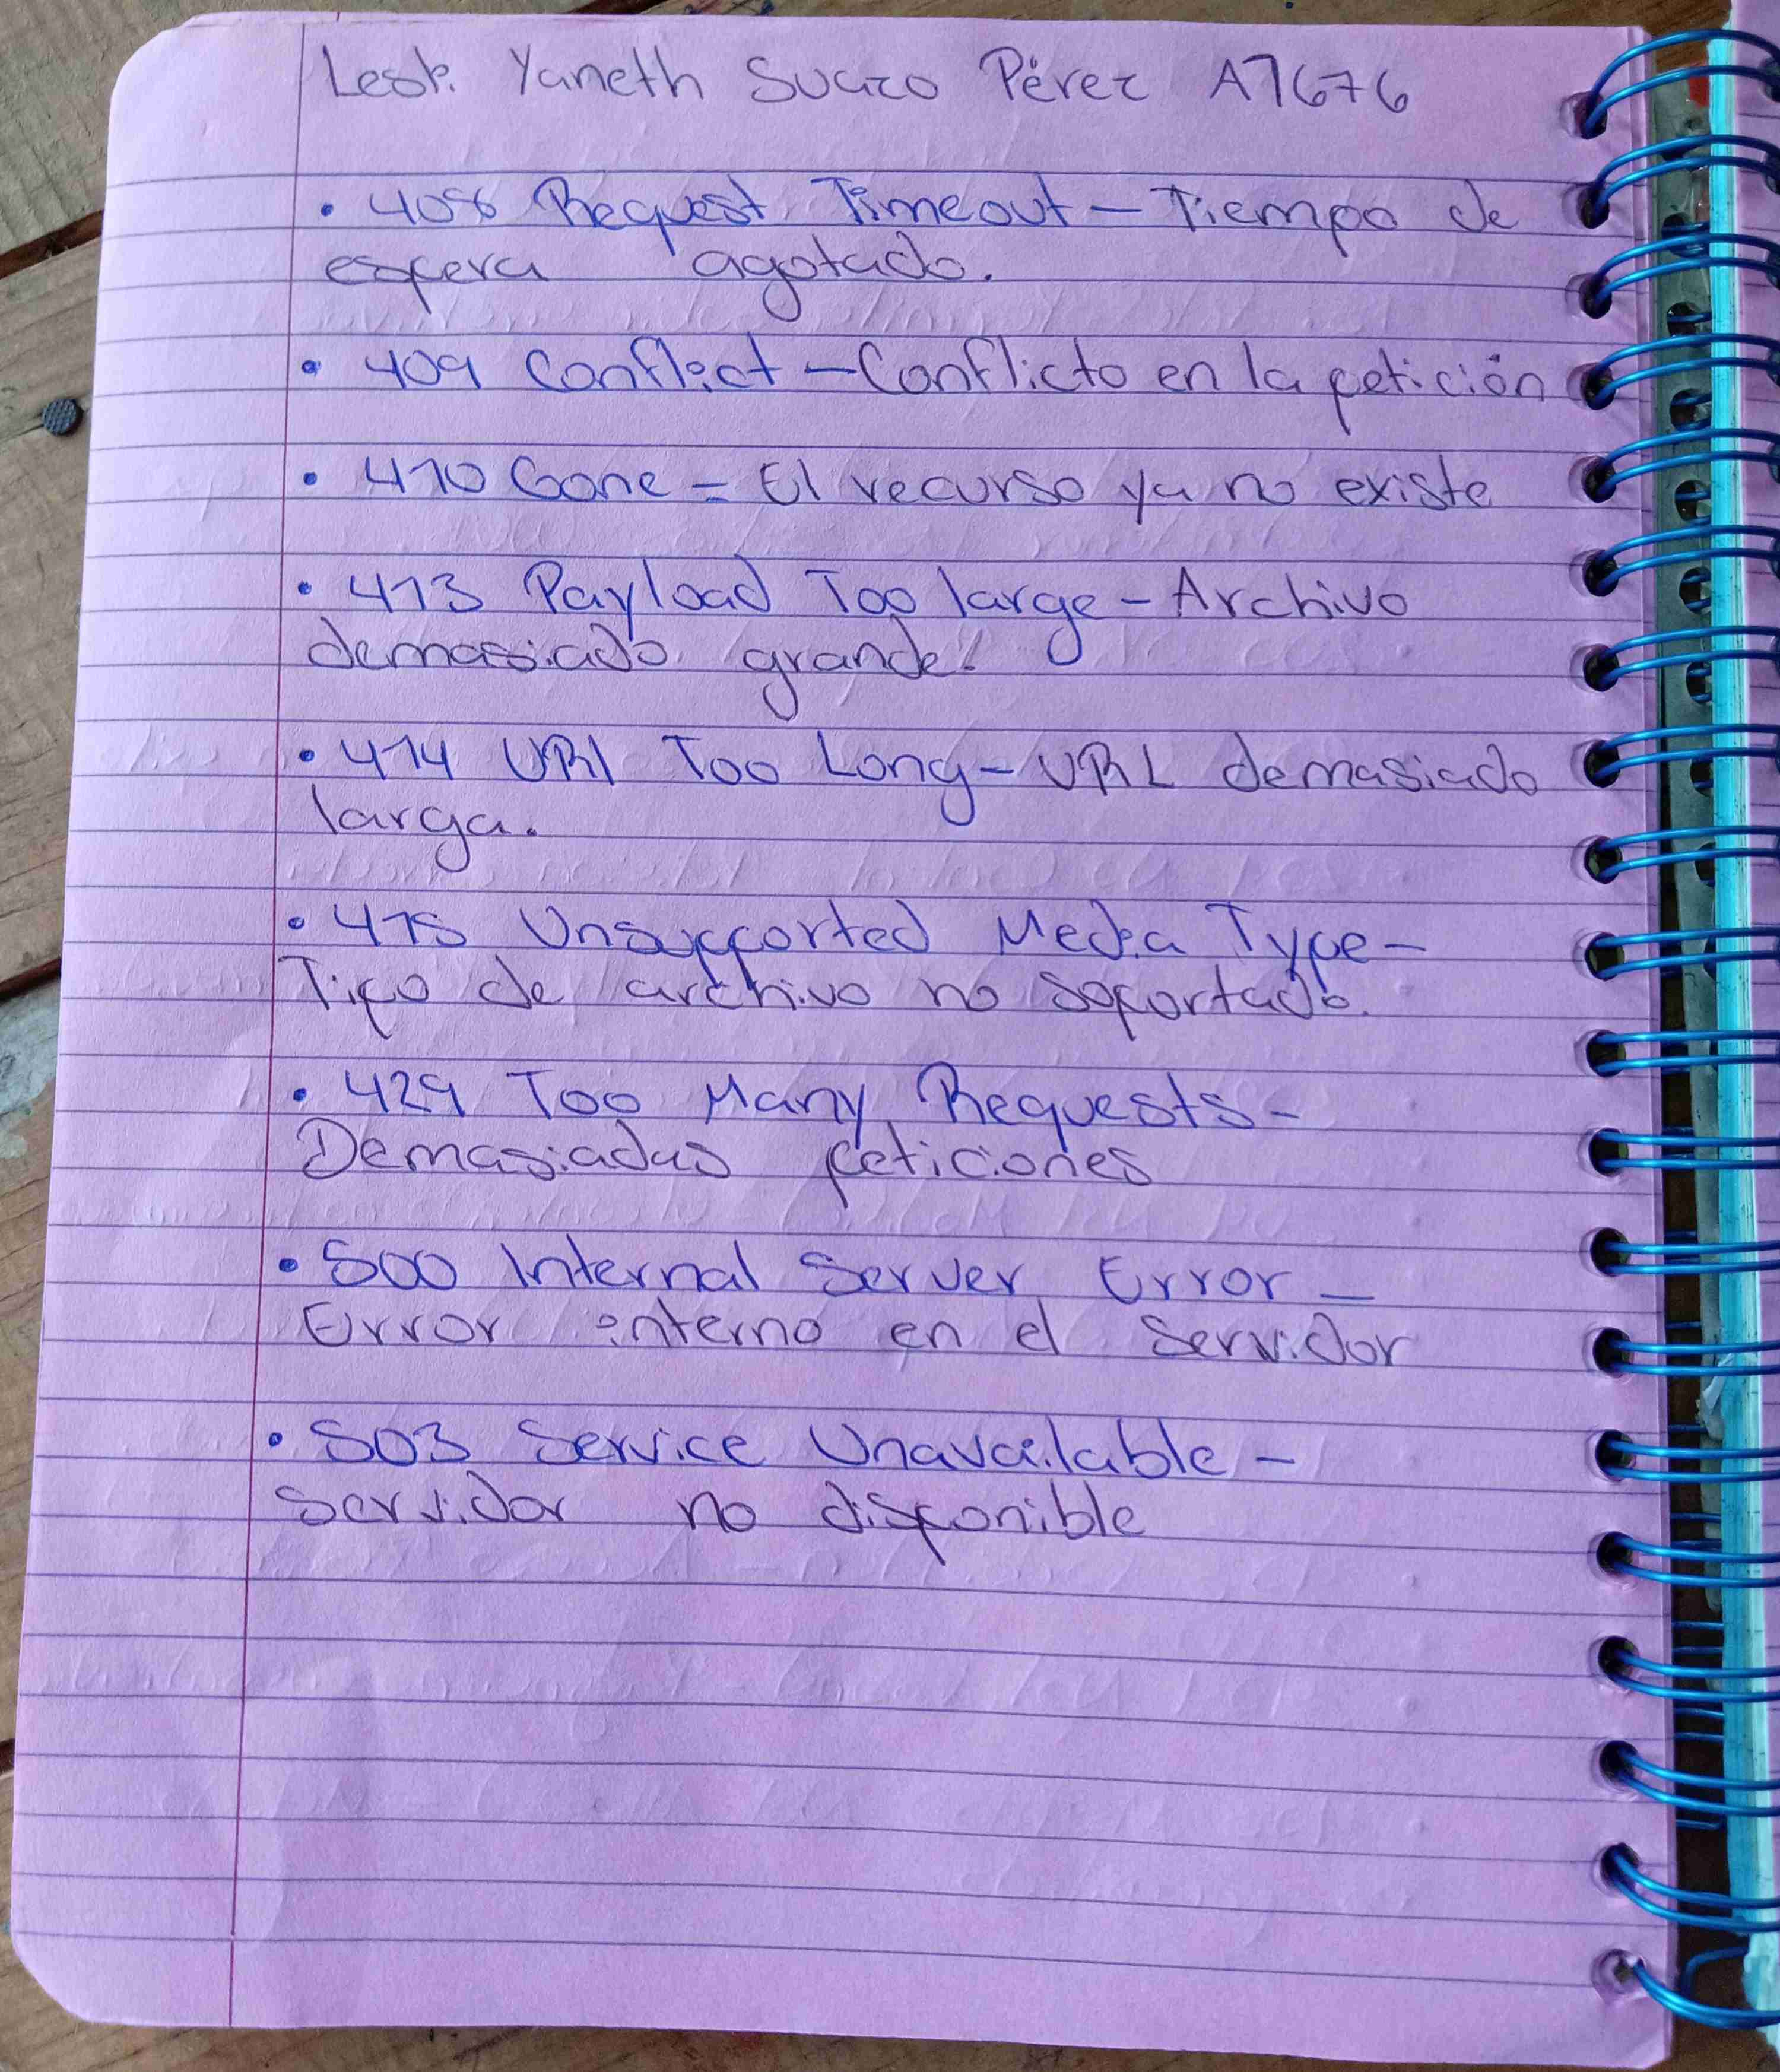 Lesli Yaneth Suazo Pérez A7676
• 408 Request Timeout - Tiempo de
espera agotado.
• 409 Conflict - Conflicto en la petición
• 410 Gone = El recurso ya no existe
• 413 Payload Too large - Archivo
demasiado grande.
• 414 URI Too Long - URL demasiado
larga.
• 415 Unsupported Media Type -
Tipo de archivo no soportado.
• 429 Too Many Requests -
Demasiadas peticiones
• 500 Internal Server Error -
Error interno en el servidor
• 503 Service Unavailable -
servidor no disponible